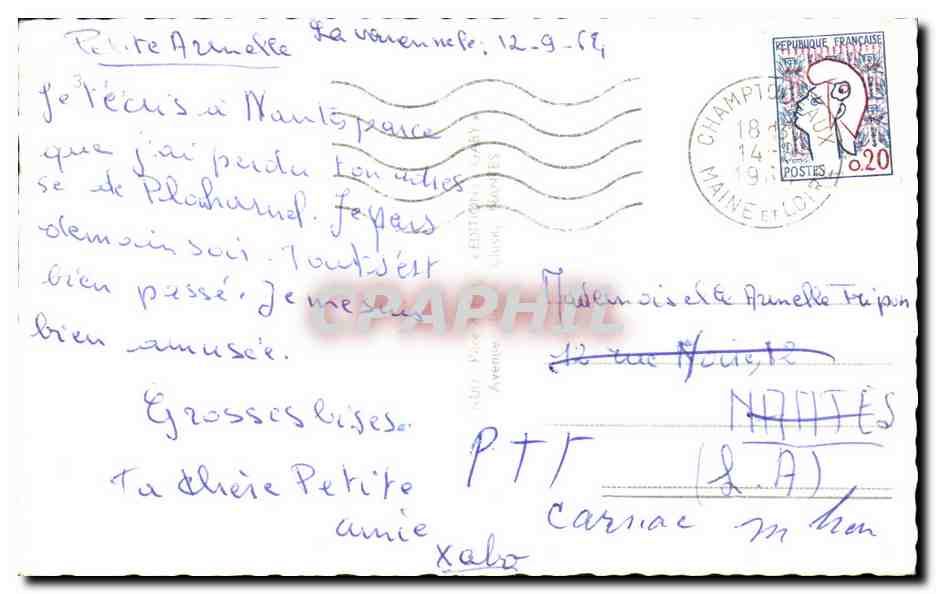 Petite Armelle La varennele, 12-9-64
Je t'écris à Nantes parce
que j'ai perdu ton adres
se de Plaharnel. Je pars
demain soir. Tout s'est
bien passé. Je me suis
bien amusée.
Grosses bises.
Ta chère Petite
amie
Xabo
REPUBLIQUE FRANÇAISE
POSTES 0,20
CHAMPTOCEAUX
18 H
14-
19
MAINE ET LOIRE
Mademoiselle Armelle Fripon
12 rue Noire, 12
NANTES
(L.A)
PTT
Carnac
CPAPHIL